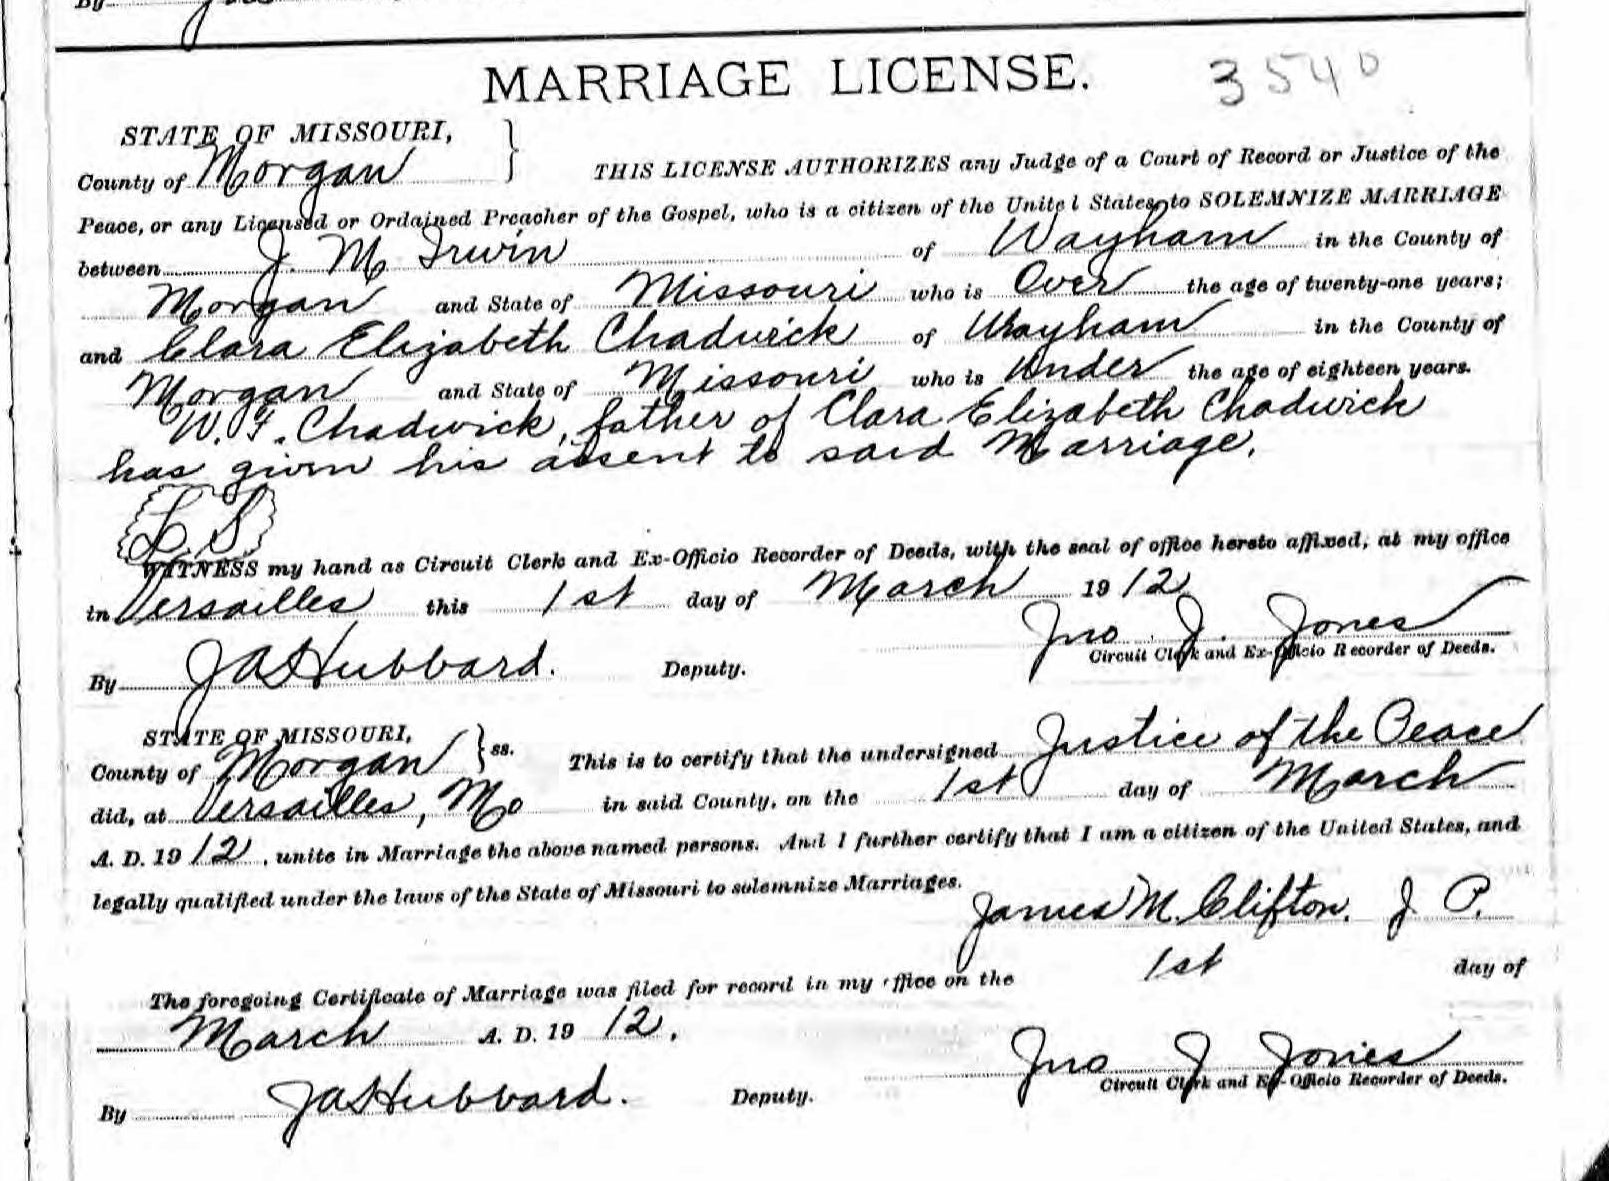 By
MARRIAGE LICENSE.
3540
STATE OF MISSOURI,
County of Morgan
THIS LICENSE AUTHORIZES any Judge of a Court of Record or Justice of the
Peace, or any Licensed or Ordained Preacher of the Gospel, who is a citizen of the United States, to SOLEMNIZE MARRIAGE
between J. M Irwin of Wayham in the County of
Morgan and State of Missouri who is Over the age of twenty-one years;
and Clara Elizabeth Chadwick of Wayham in the County of
Morgan and State of Missouri who is Under the age of eighteen years.
W. F. Chadwick, father of Clara Elizabeth Chadwick
has given his assent to said Marriage.
L S
WITNESS my hand as Circuit Clerk and Ex-Officio Recorder of Deeds, with the seal of office hereto affixed, at my office
in Versailles this 1st day of March 1912
Jno. J. Jones
Circuit Clerk and Ex-Officio Recorder of Deeds.
By JAS Hubbard. Deputy.
STATE OF MISSOURI,
County of Morgan } ss. This is to certify that the undersigned Justice of the Peace
did, at Versailles, Mo in said County, on the 1st day of March
A. D. 1912, unite in Marriage the above named persons. And I further certify that I am a citizen of the United States, and
legally qualified under the laws of the State of Missouri to solemnize Marriages.
James M. Clifton. J P.
The foregoing Certificate of Marriage was filed for record in my office on the 1st day of
March A. D. 1912.
Jno J Jones
Circuit Clerk and Ex-Officio Recorder of Deeds.
By JAS Hubbard. Deputy.